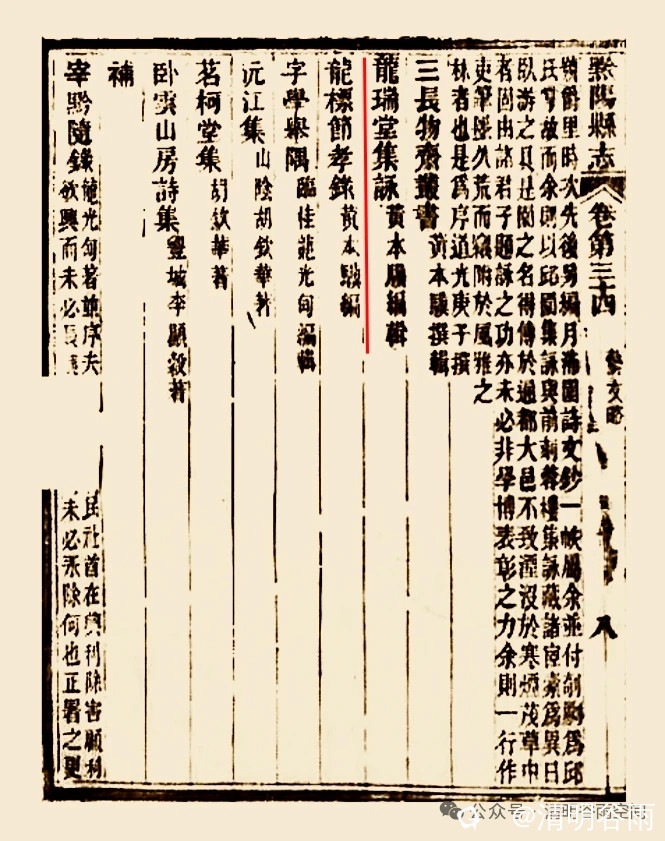 黔陽縣志 卷第三十四 藝文略 八
爵里時次先後另編月潯園詩文鈔一帙屬余並付剞劂為邱
氏寄故而余則以邱園集詠與前刻蓉樓集詠藏諸宦橐為異日
臥游之具是園之名得傳於通都大邑不致湮沒於寒煙茂草中
者固由諸君子題詠之功亦未必非學博表彰之力余則一行作
吏筆墨久荒而竊附於風雅之
林者也是為序道光庚子撰
三長物齋叢書 黃本驥撰輯
龍瑞堂集詠 黃本驥編輯
龍標節孝錄 黃本驥編
字學舉隅 臨桂龍光甸編輯
沅江集 山陰胡欽華著
茗柯堂集 胡欽華著
臥雲山房詩集 豐城李顯穀著
補
宰黔隨錄 龍光甸著並序夫
民社首在興利除害顧利
欲興而未必長
未必永除何也正署之更
公众号·清明谷雨空间
@清明谷雨